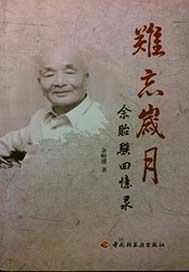 難忘歲月
余貽驥回憶录
余贻骥 著
中国轻工业出版社